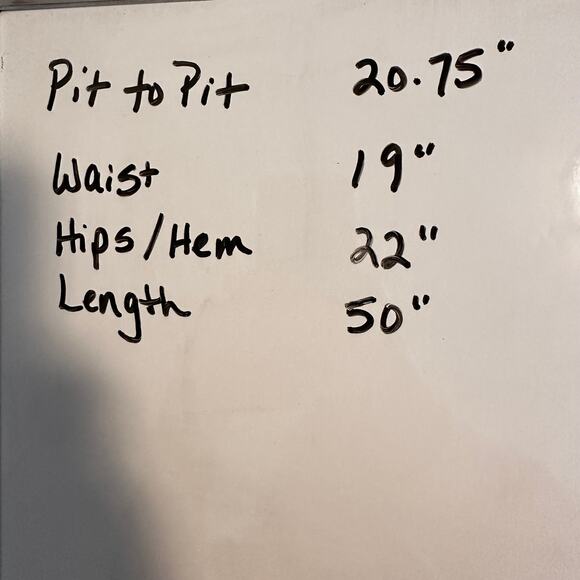 Pit to Pit 20.75"
Waist 19"
Hips/Hem 22"
Length 50"